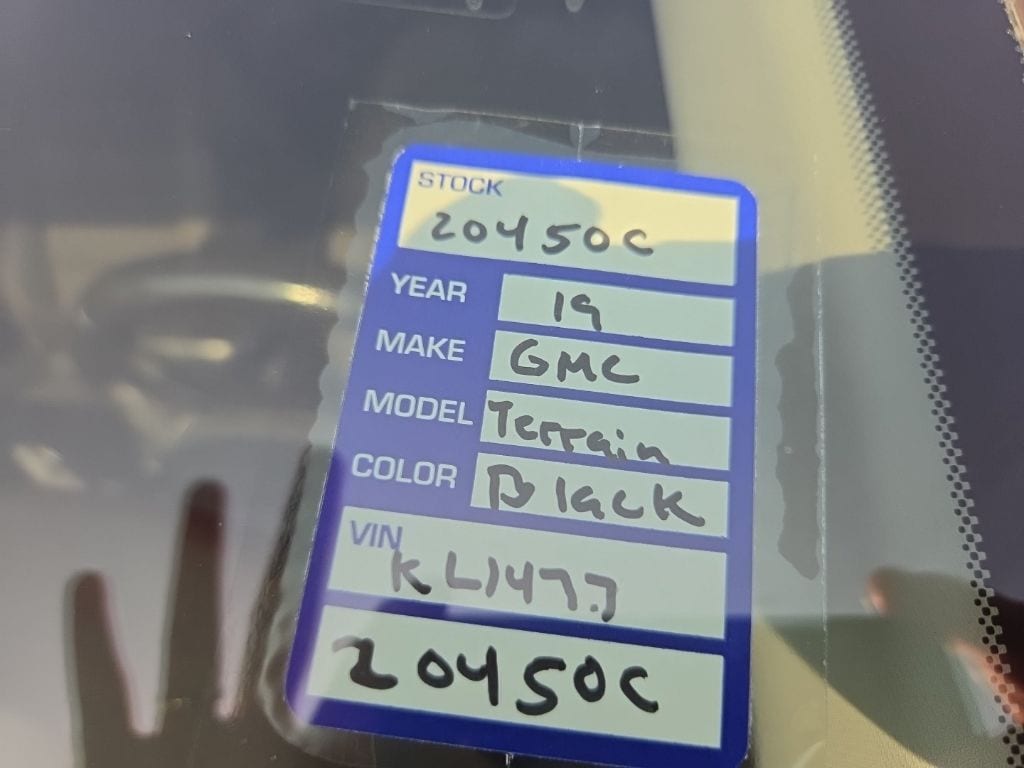 STOCK
20450C
YEAR 19
MAKE GMC
MODEL Terrain
COLOR Black
VIN
KL147.7
20450C